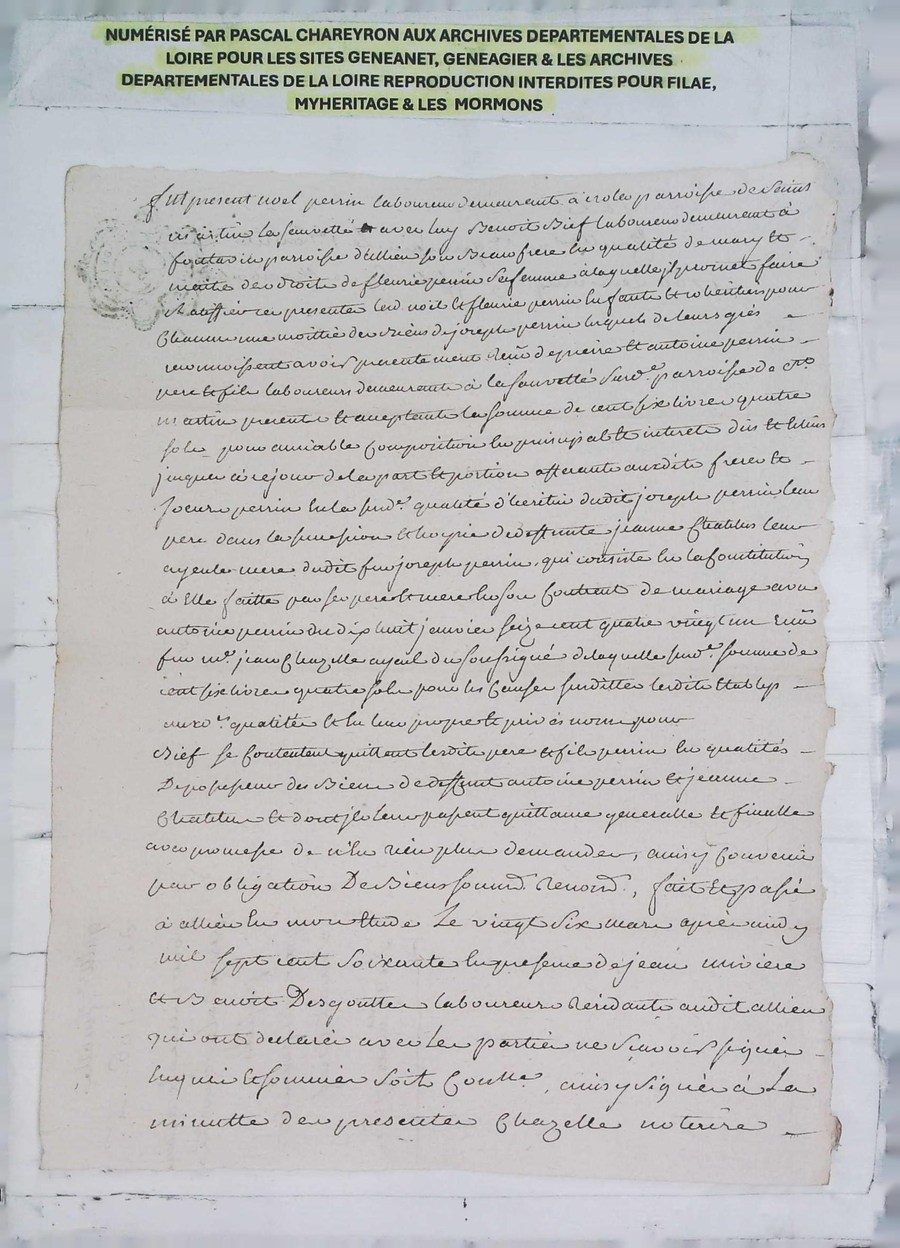 NUMÉRISÉ PAR PASCAL CHAREYRON AUX ARCHIVES DEPARTEMENTALES DE LA
LOIRE POUR LES SITES GENEANET, GENEAGIER & LES ARCHIVES
DEPARTEMENTALES DE LA LOIRE REPRODUCTION INTERDITES POUR FILAE,
MYHERITAGE & LES MORMONS
fut present noel perrin laboureur demeurant à parroisse de Saint
martin la sauveté avec luy Benoit Bief laboureur demeurant à
parroisse d'allieu son Beaufrere en qualité de mary et
maitre des droits de fleurie perrin sa femme à laquelle il promet faire
ratiffier ces presentes lesd noel et fleurie perrin enfants et coheritiers pour
Chacun une moittié des Biens de joseph perrin lesquels de leurs grés
reconnoissent avoir presentement reçu de pierre et antoine perrin
pere et fils laboureurs demeurants à la sauvetté surd.e parroisse de St
martin presents et acceptants la somme de cent six livres quatre
sols pour amiable Composition en principal et interets
jusques à ce jour de la part et portion afferante auxdits frere et
soeur perrin en la surd.e qualité d'heritiers dudit joseph perrin leur
pere dans la succession et hoirie de deffunte jeanne Chatelus leur
ayeule mere dudit feu joseph perrin, qui consiste en la Constitution
à Elle faitte par ses pere et mere en son Contrat de mariage avec
antoine perrin du dix huit janvier seize cent quatre vingt un reçu
feu me. jean Chazelle ayeul du soussigné de laquelle surd.e somme de
cent six livres quatre sols pour les Causes surdittes lesdits Establys
auxd. qualités et en leur propre et privés noms pour
Bief se Contentent quittent lesdits pere et fils perrin en qualités
De possesseurs des Biens de deffunt antoine perrin et jeanne
Chatelus et dont ils leur passent quittance generalle et finalle
avec promesse de n'en rien plus demander, ainsy Convenu
par obligation De Biens soumis. renonc., fait et passé
à allieu en mon Etude Le vingt six mars après midy
mil sept cent soixante en presence de jean
et Benoit Desgoutte laboureurs residants audit allieu
qui ont declaré avec les parties ne sçavoir signer
Enquis et sommés soit Conlle. ainsy signée à La
minutte des presentes Chazelle notaire